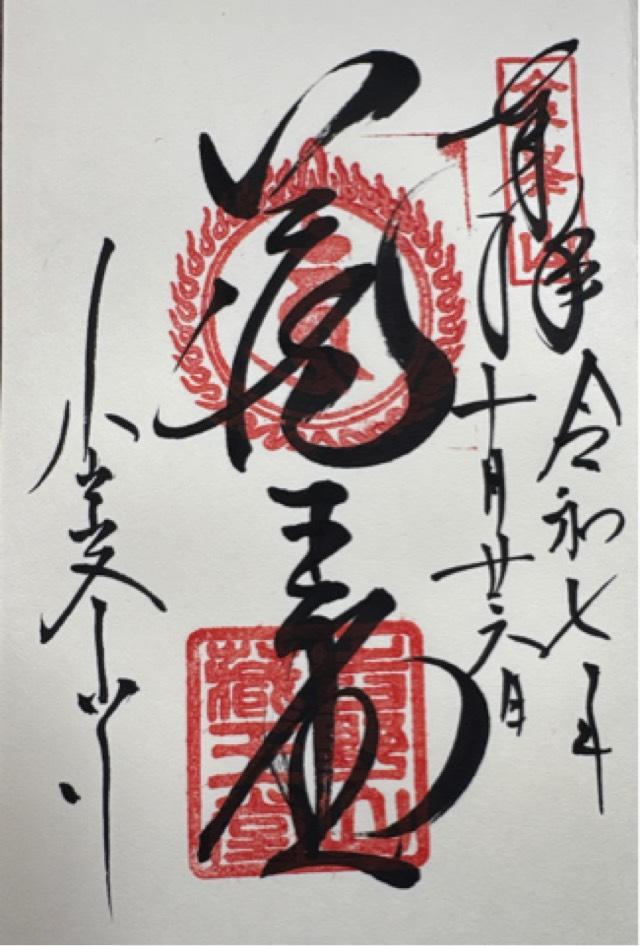 金峯山
奉拝
令和七年
十月廿六日
蔵王堂
吉野山
藏王堂